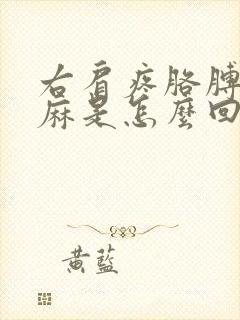 右肩疼胳膊
麻是怎麼回
黄藍